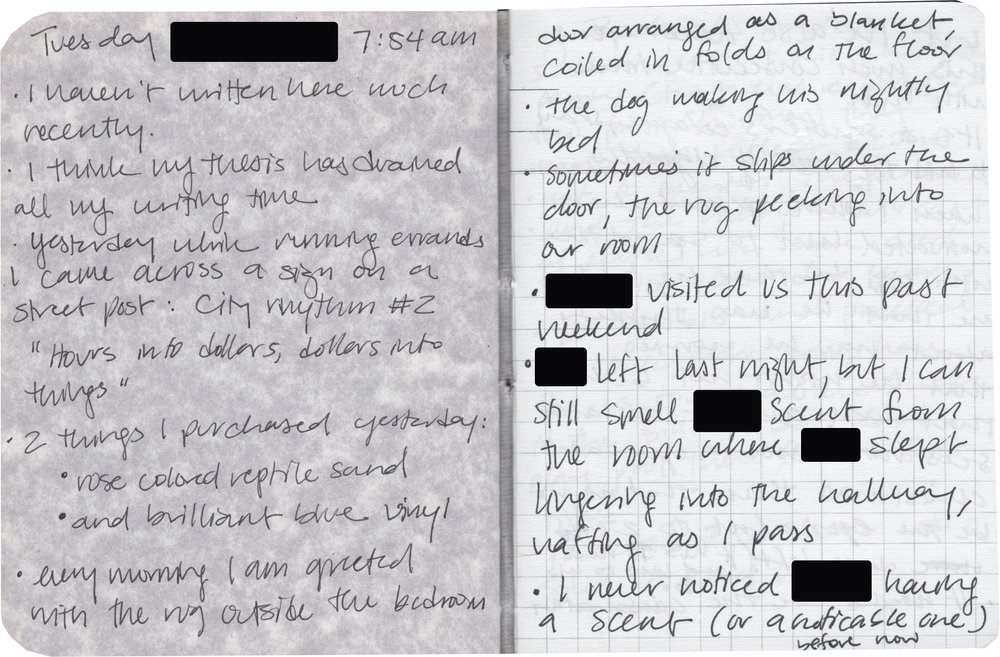 Tuesday 7:54 am
· I haven't written here much
recently.
· I think my thesis has drained
all my writing time
· yesterday while running errands
I came across a sign on a
street post: City rhythm #2
"Hours into dollars, dollars into
things"
· 2 things I purchased yesterday:
· rose colored reptile sand
· and brilliant blue vinyl
· every morning I am greeted
with the rug outside the bedroom
door arranged as a blanket,
coiled in folds on the floor
· the dog making his nightly
bed
· sometimes it slips under the
door, the rug peeking into
our room
· visited us this past
weekend
· left last night, but I can
still smell scent from
the room where slept
lingering into the hallway,
wafting as I pass
· I never noticed having
a scent (or a noticable one)
before now